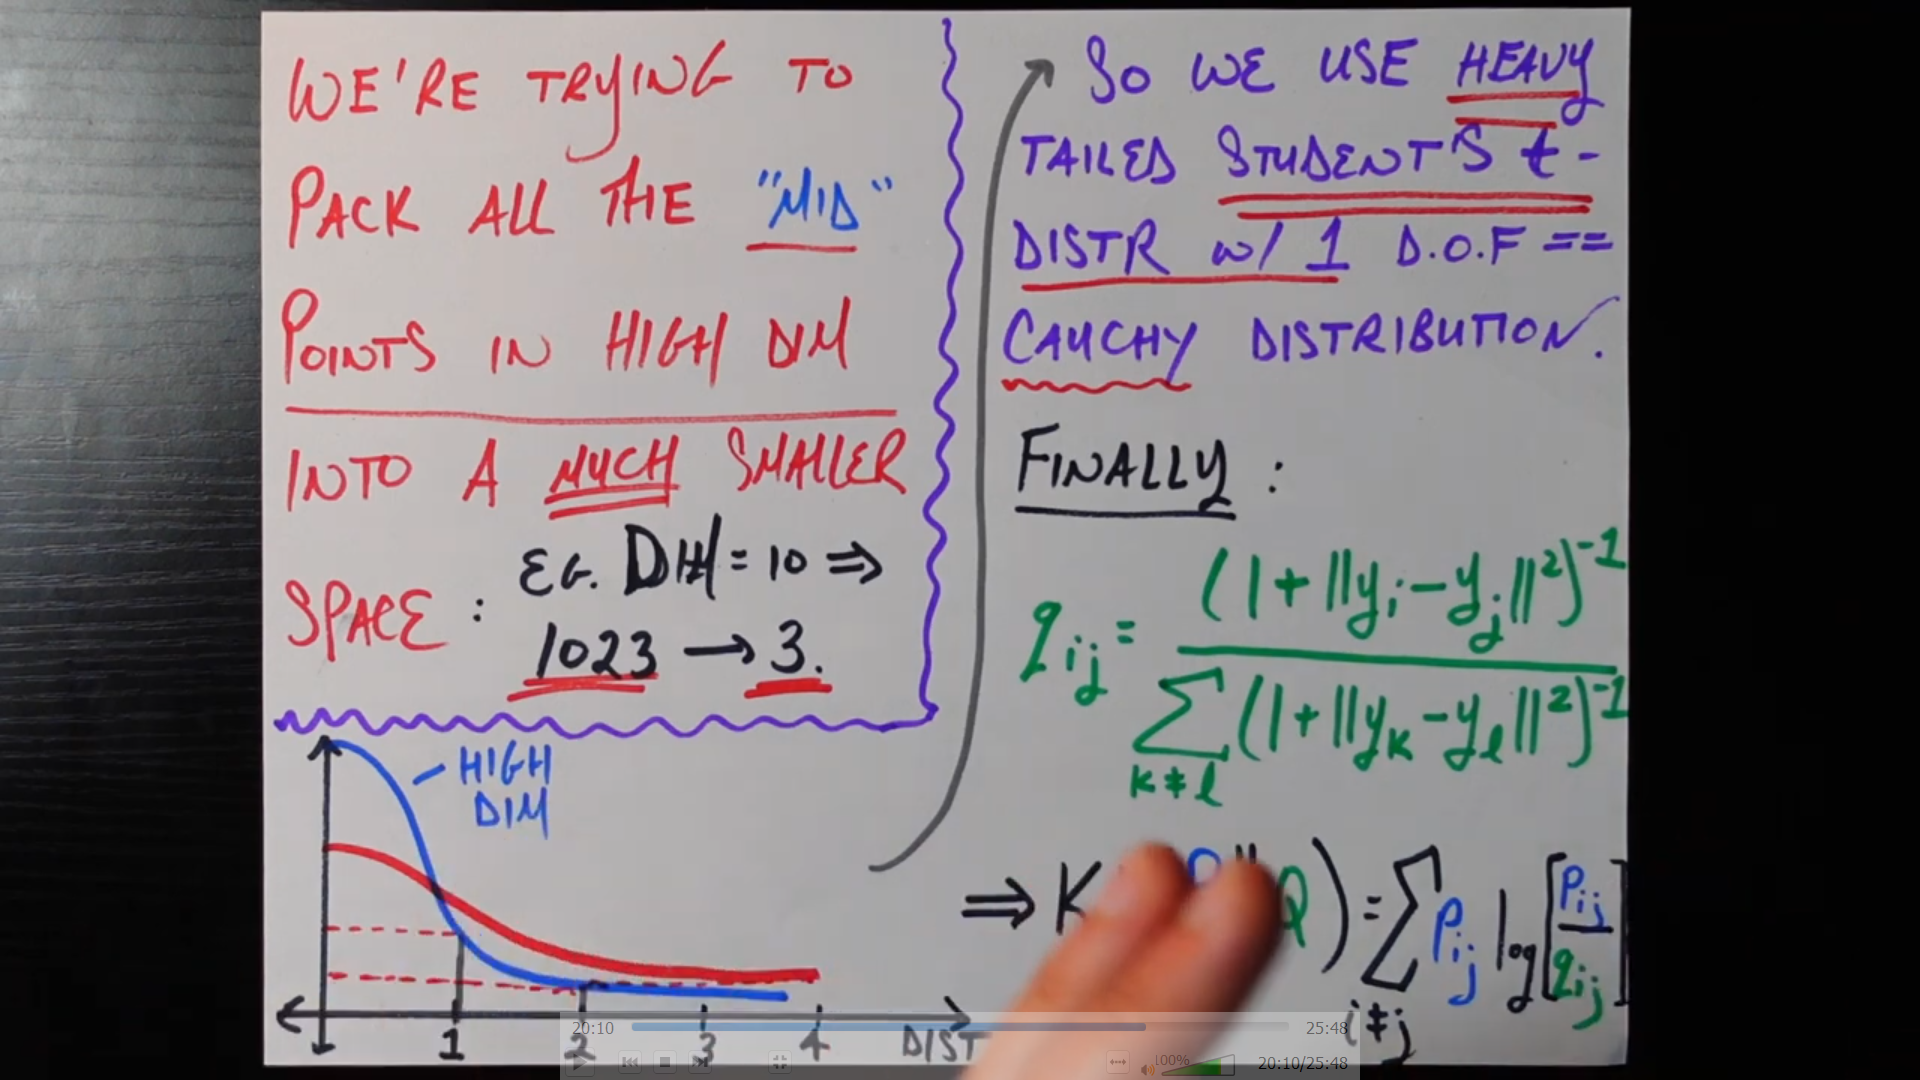 WE'RE TRYING TO
PACK ALL THE "MID"
POINTS IN HIGH DIM
INTO A MUCH SMALLER
SPACE : EG. DIM = 10 ⇒
1023 → 3.
HIGH
DIM
1 2 3 4 DIST
SO WE USE HEAVY
TAILED STUDENT'S t-
DISTR W/ 1 D.O.F ==
CAUCHY DISTRIBUTION.
FINALLY :
qij = (1 + ||yi - yj||²)⁻¹
∑ (1 + ||yk - yl||²)⁻¹
k ≠ l
⇒ K Q) = ∑ Pij log [Pij / qij]
i ≠ j
20:10 25:48
100% 20:10/25:48